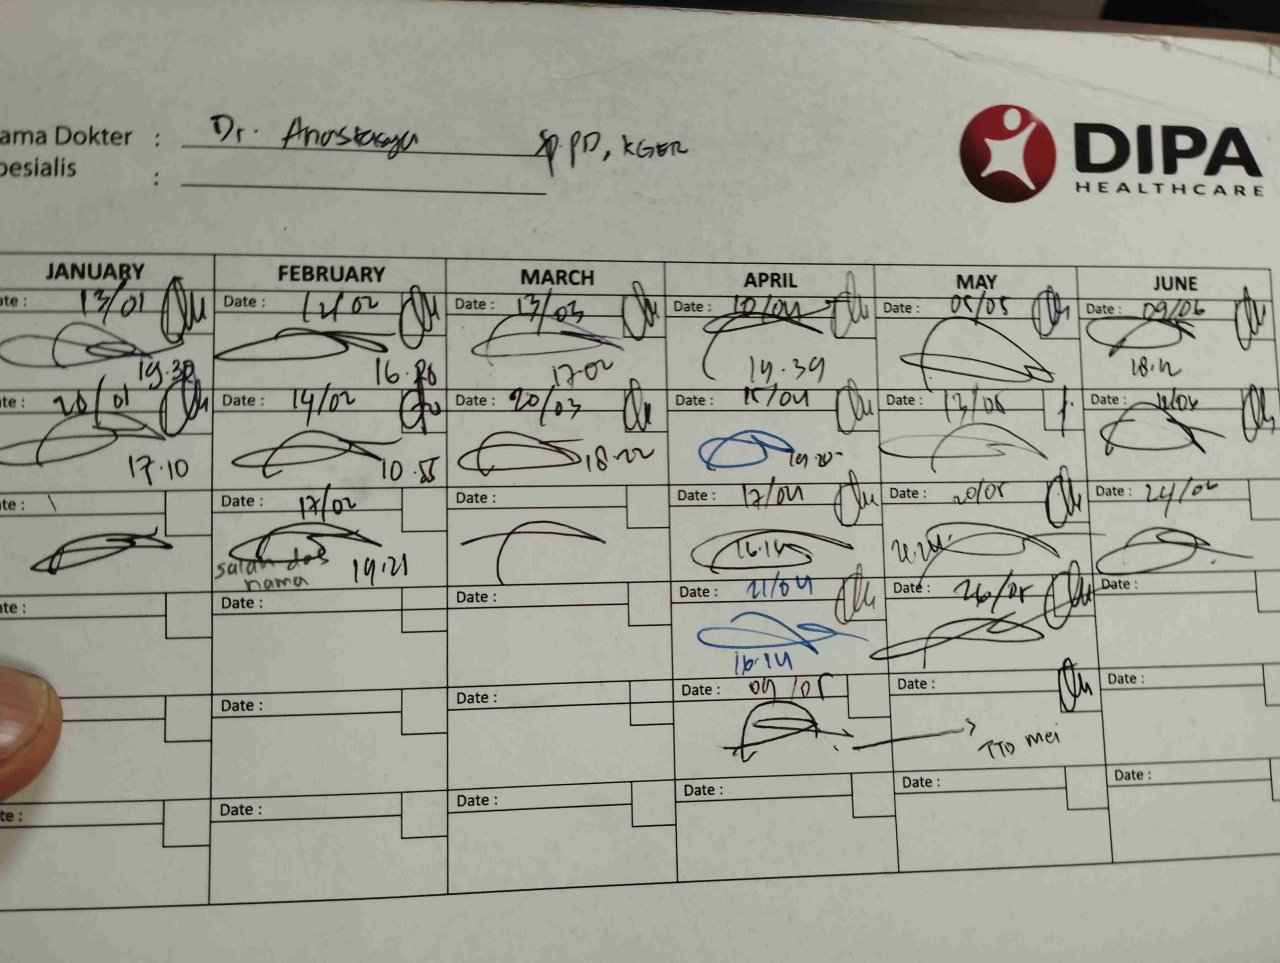 ama Dokter : Dr. Anastasya Sp.PD, KGER
pesialis :
DIPA
HEALTHCARE
JANUARY FEBRUARY MARCH APRIL MAY JUNE
ate : 13/01 Date : 12/02 Date : 13/03 Date : 10/04 Date : 05/05 Date : 09/06
19.30 16. 17.02 19.39 18.12
ate : 20/01 Date : 14/02 Date : 20/03 Date : 15/04 Date : 13/05 Date :
17.10 10.55 18.22
ate : Date : 17/02 Date : Date : 17/04 Date : 20/05 Date : 24/06
salah dab nama 19.21 16.14
ate : Date : Date : Date : 21/04 Date : 26/05 Date :
16.14
Date : Date : Date : 09/05 Date : Date :
TTD Mei
te : Date : Date : Date : Date : Date :